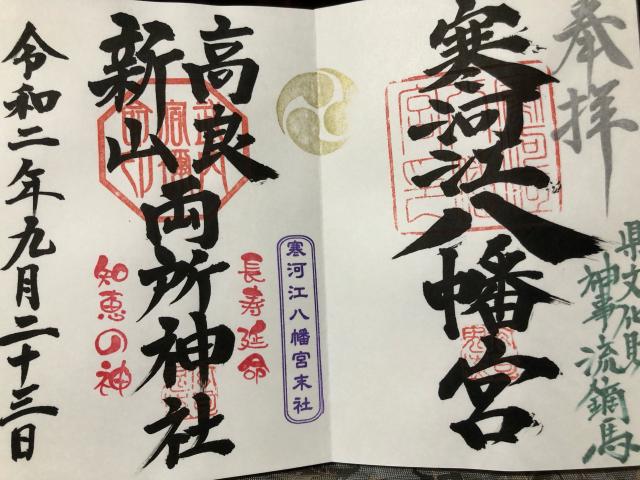 奉拝
県文化財
神事流鏑馬
寒河江八幡宮
寒河江八幡宮末社
長寿延命
高良
新山
両所神社
知恵の神
令和二年九月二十三日